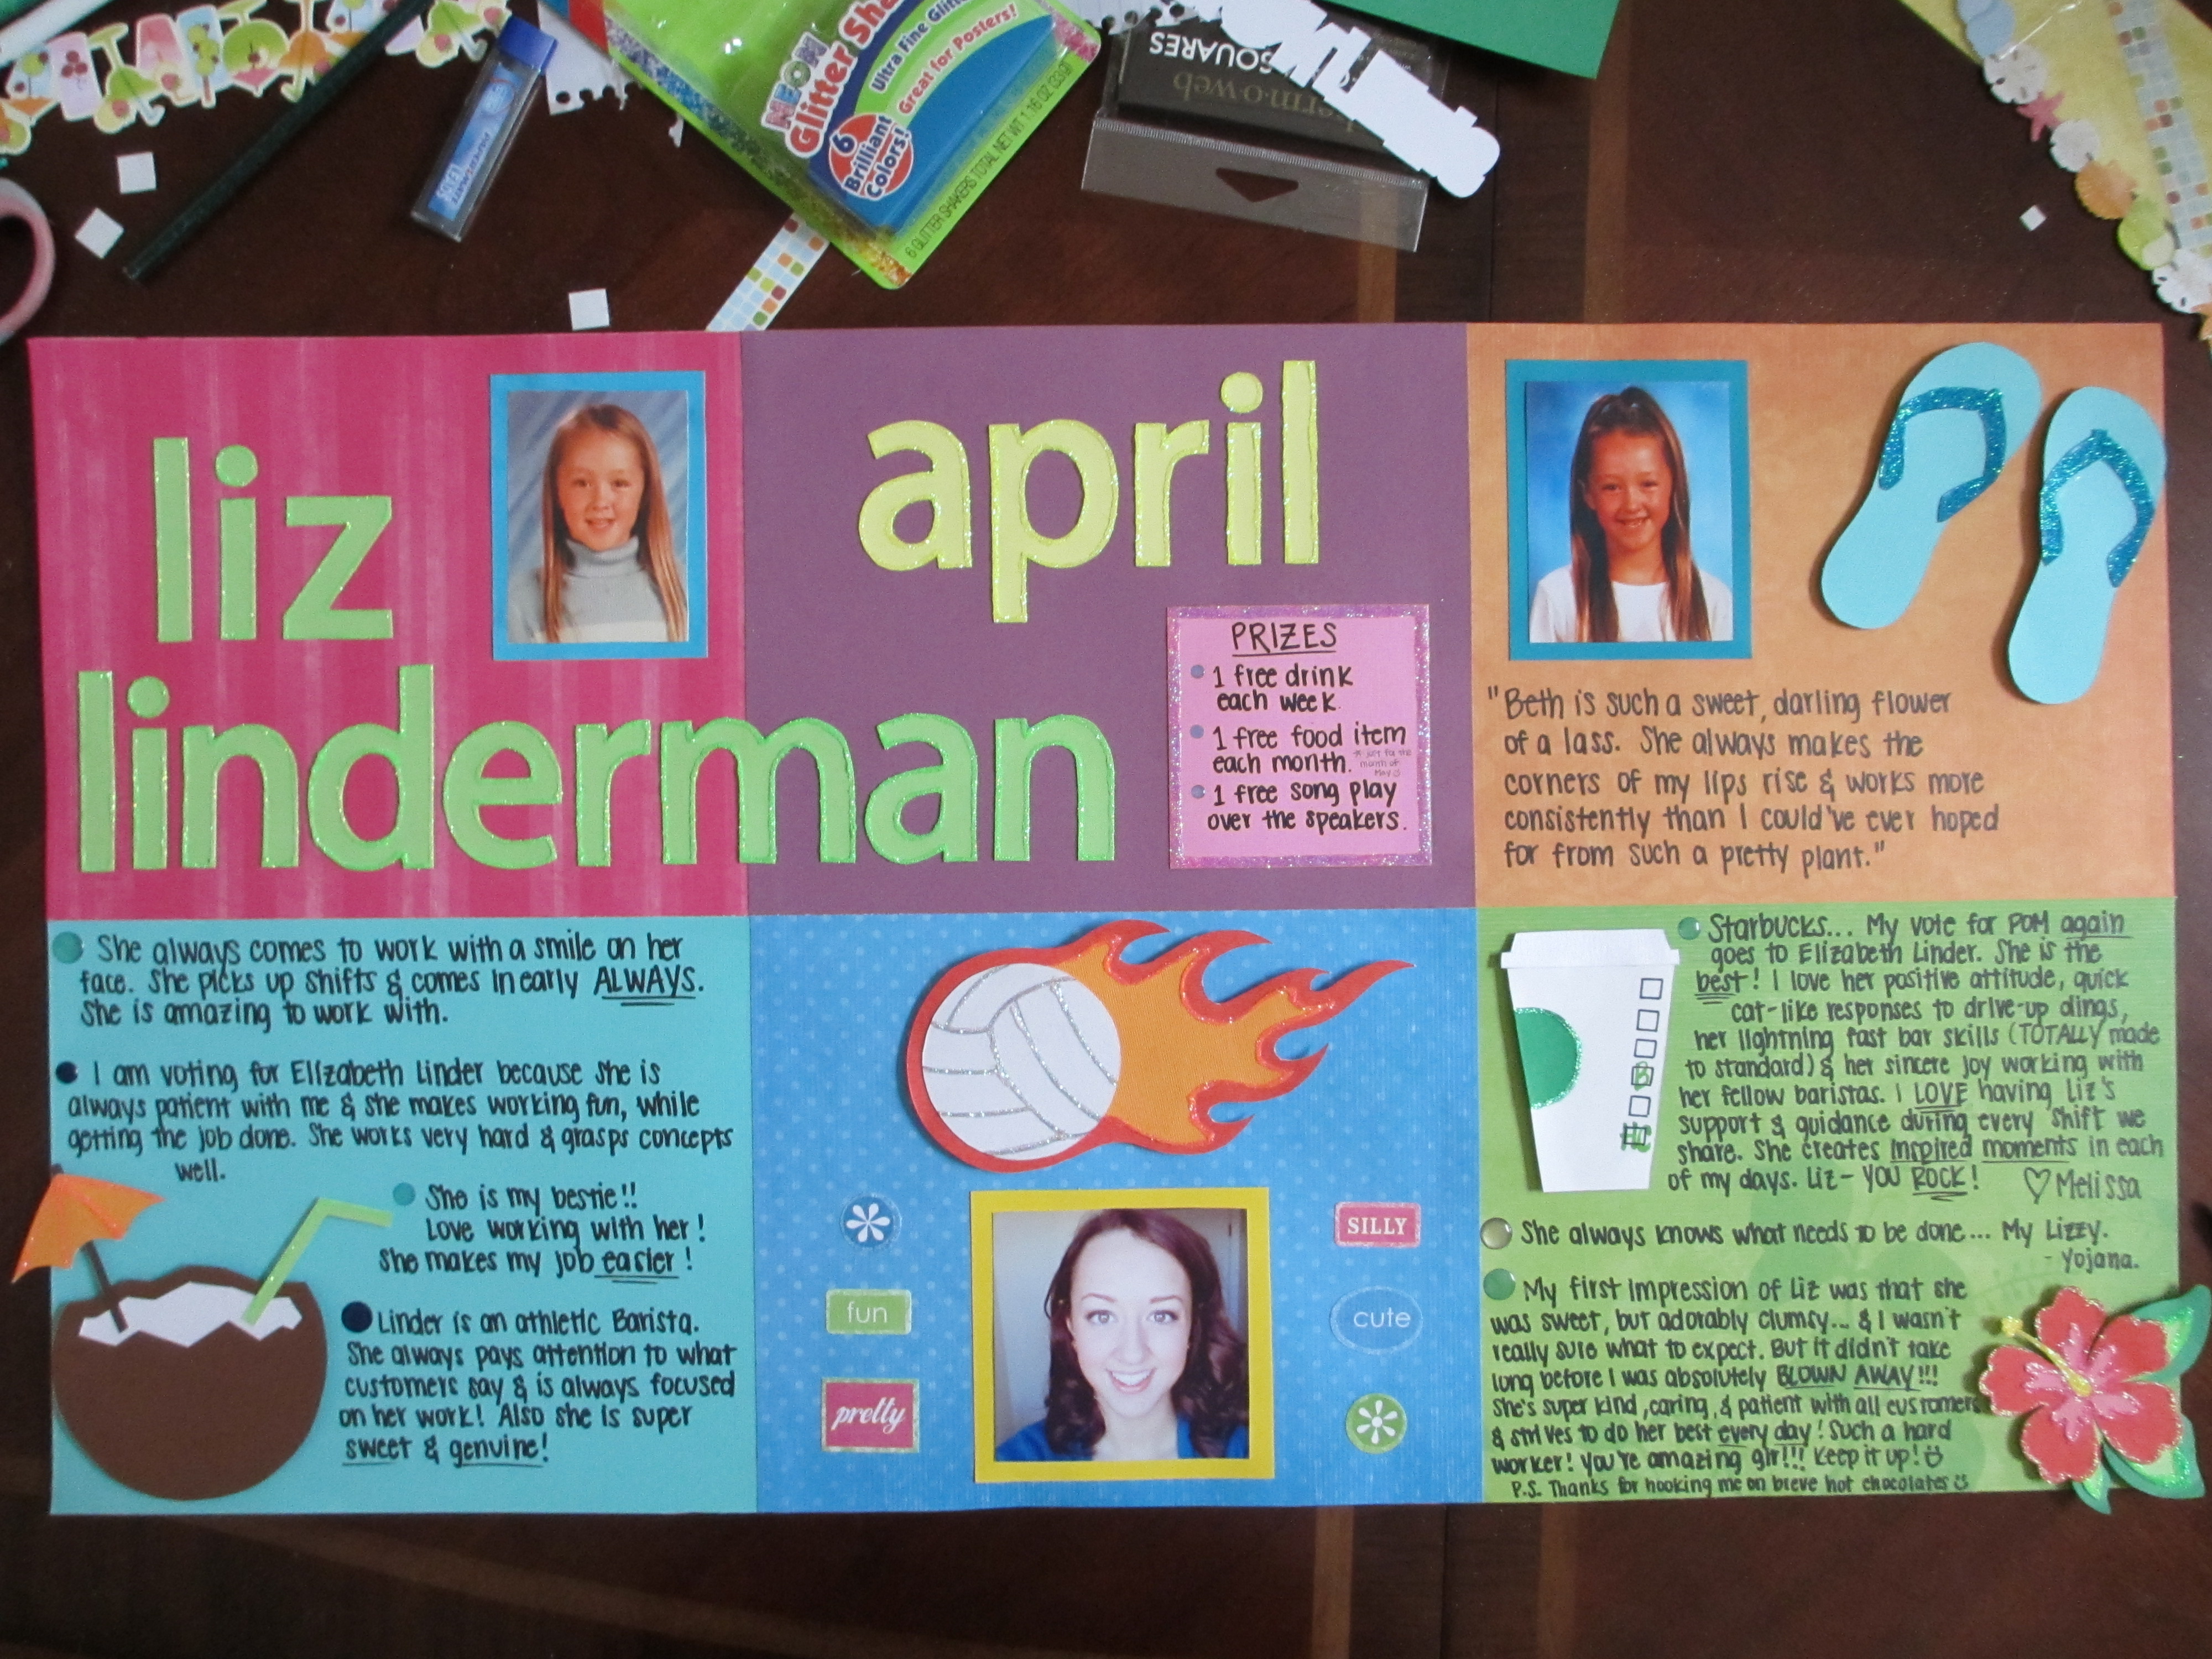 NEON
Glitter Sha
Ultra Fine Glitt
Great for Posters!
6
Brilliant
Colors!
6 GLITTER SHAKERS TOTAL NET WT 1.16 OZ (33g)
SQUARES
erm·o·web
liz
linderman
april
PRIZES
1 free drink
each week.
1 free food item
each month. * just for the
month of
May
1 free song play
over the speakers.
"Beth is such a sweet, darling flower
of a lass. She always makes the
corners of my lips rise & works more
consistently than I could've ever hoped
for from such a pretty plant."
She always comes to work with a smile on her
face. She picks up shifts & comes in early ALWAYS.
She is amazing to work with.
I am voting for Elizabeth Linder because she is
always patient with me & she makes working fun, while
getting the job done. She works very hard & grasps concepts
well.
She is my bestie!!
Love working with her!
She makes my job easier!
Linder is an athletic Barista.
She always pays attention to what
customers say & is always focused
on her work! Also she is super
sweet & genuine!
fun
pretty
SILLY
cute
Starbucks... My vote for POM again
goes to Elizabeth Linder. She is the
best! I love her positive attitude, quick
cat-like responses to drive-up dings,
her lightning fast bar skills (TOTALLY made
to standard) & her sincere joy working with
her fellow baristas. I LOVE having Liz's
support & guidance during every shift we
share. She creates inspired moments in each
of my days. Liz- YOU ROCK! ♡ Melissa
She always knows what needs to be done... My Lizzy.
- Yojana.
My first impression of Liz was that she
was sweet, but adorably clumsy... & I wasn't
really sure what to expect. But it didn't take
long before I was absolutely BLOWN AWAY!!!
She's super kind, caring, & patient with all customers
& strives to do her best every day! Such a hard
worker! You're amazing girl!!! Keep it up!
P.S. Thanks for hooking me on breve hot chocolates